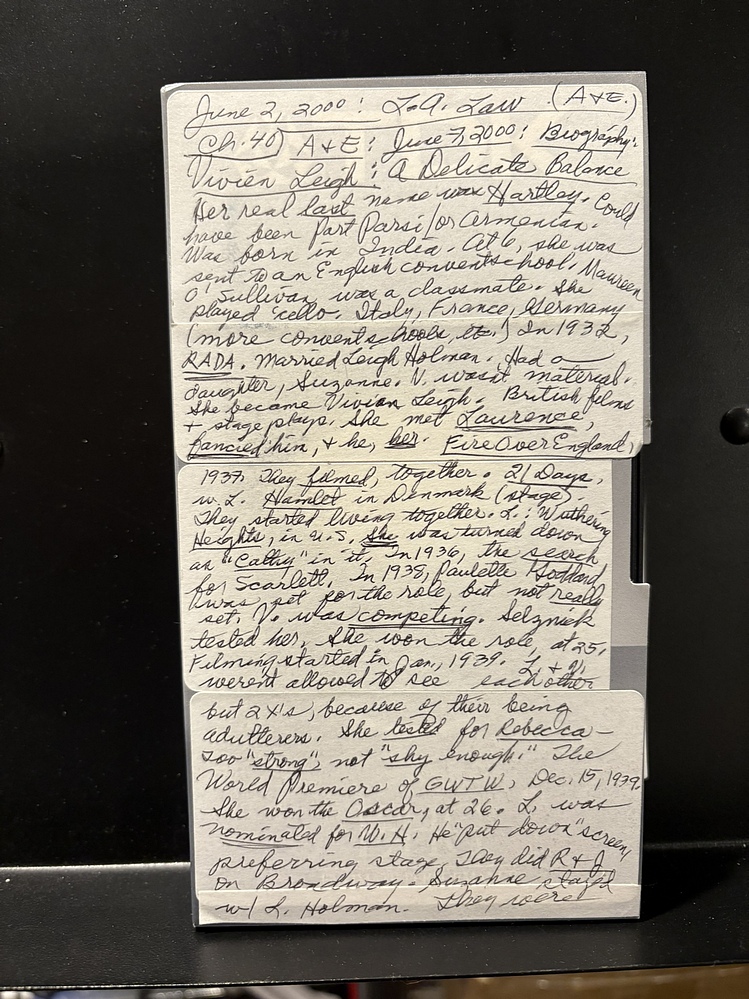 June 2, 2000: L.A. Law (A+E.)
Ch. 40) A+E: June 7, 2000: Biography:
Vivien Leigh: A Delicate Balance
Her real last name was Hartley. Could
have been part Parsi/or Armenian.
Was born in India. At 6, she was
sent to an English convent school. Maureen
O'Sullivan was a classmate. She
played 'cello. Italy, France, Germany
(more convent schools, etc.) In 1932,
RADA. Married Leigh Holman. Had a
daughter, Suzanne. V. wasn't material.
She became Vivian Leigh. British films
+ stage plays. She met Laurence,
fancied him, + he, her. Fire Over England,
1937. They filmed, together. 21 Days,
w. L. Hamlet in Denmark (stage).
They started living together. L.: Wuthering
Heights, in U.S. She was turned down
as "Cathy" in it. In 1936, the search
for Scarlett. In 1938, Paulette Goddard
was set for the role, but not really
set. V. was competing. Selznick
tested her. She won the role, at 25.
Filming started in Jan, 1939. L. + V.
werent allowed to see each other
but 2 x's, because of their being
adulterers. She tested for Rebecca -
too "strong", not "shy enough." The
World Premiere of GWTW, Dec. 15, 1939.
She won the Oscar, at 26. L. was
nominated for W.H. He "put down" screen,
preferring stage. They did R + J
on Broadway. Suzanne stayed
w/ L. Holman. They were